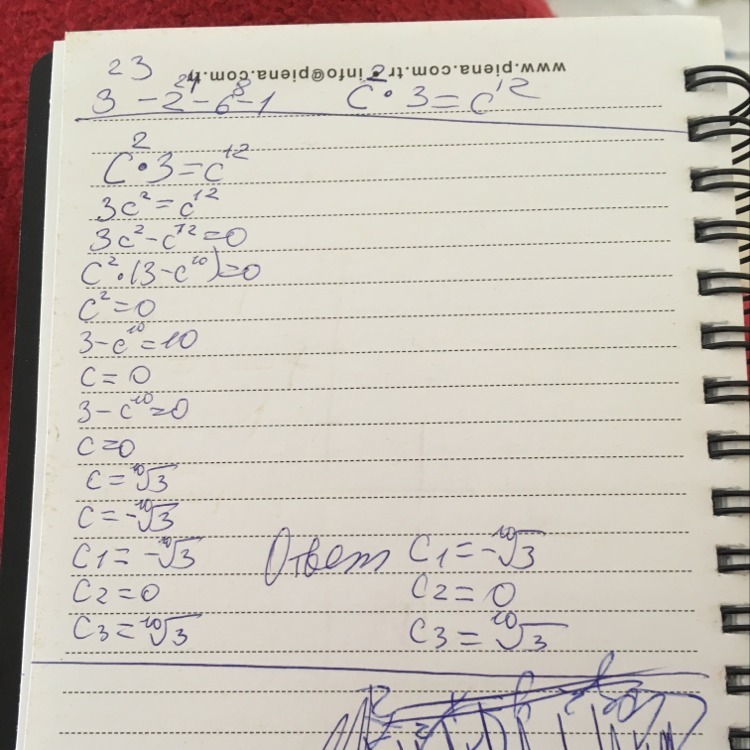 www.piena.com.tr • info@piena.com.tr
23
3 - 2²⁴ - 6⁸ - 1
c² · 3 = c¹²
c² · 3 = c¹²
3c² = c¹²
3c² - c¹² = 0
c² · (3 - c¹⁰) = 0
c² = 0
3 - c¹⁰ = 10
c = 0
3 - c¹⁰ = 0
c = 0
c = ¹⁰√3
c = -¹⁰√3
c1 = -¹⁰√3
c2 = 0
c3 = ¹⁰√3
Ответ c1 = -¹⁰√3
c2 = 0
c3 = ¹⁰√3